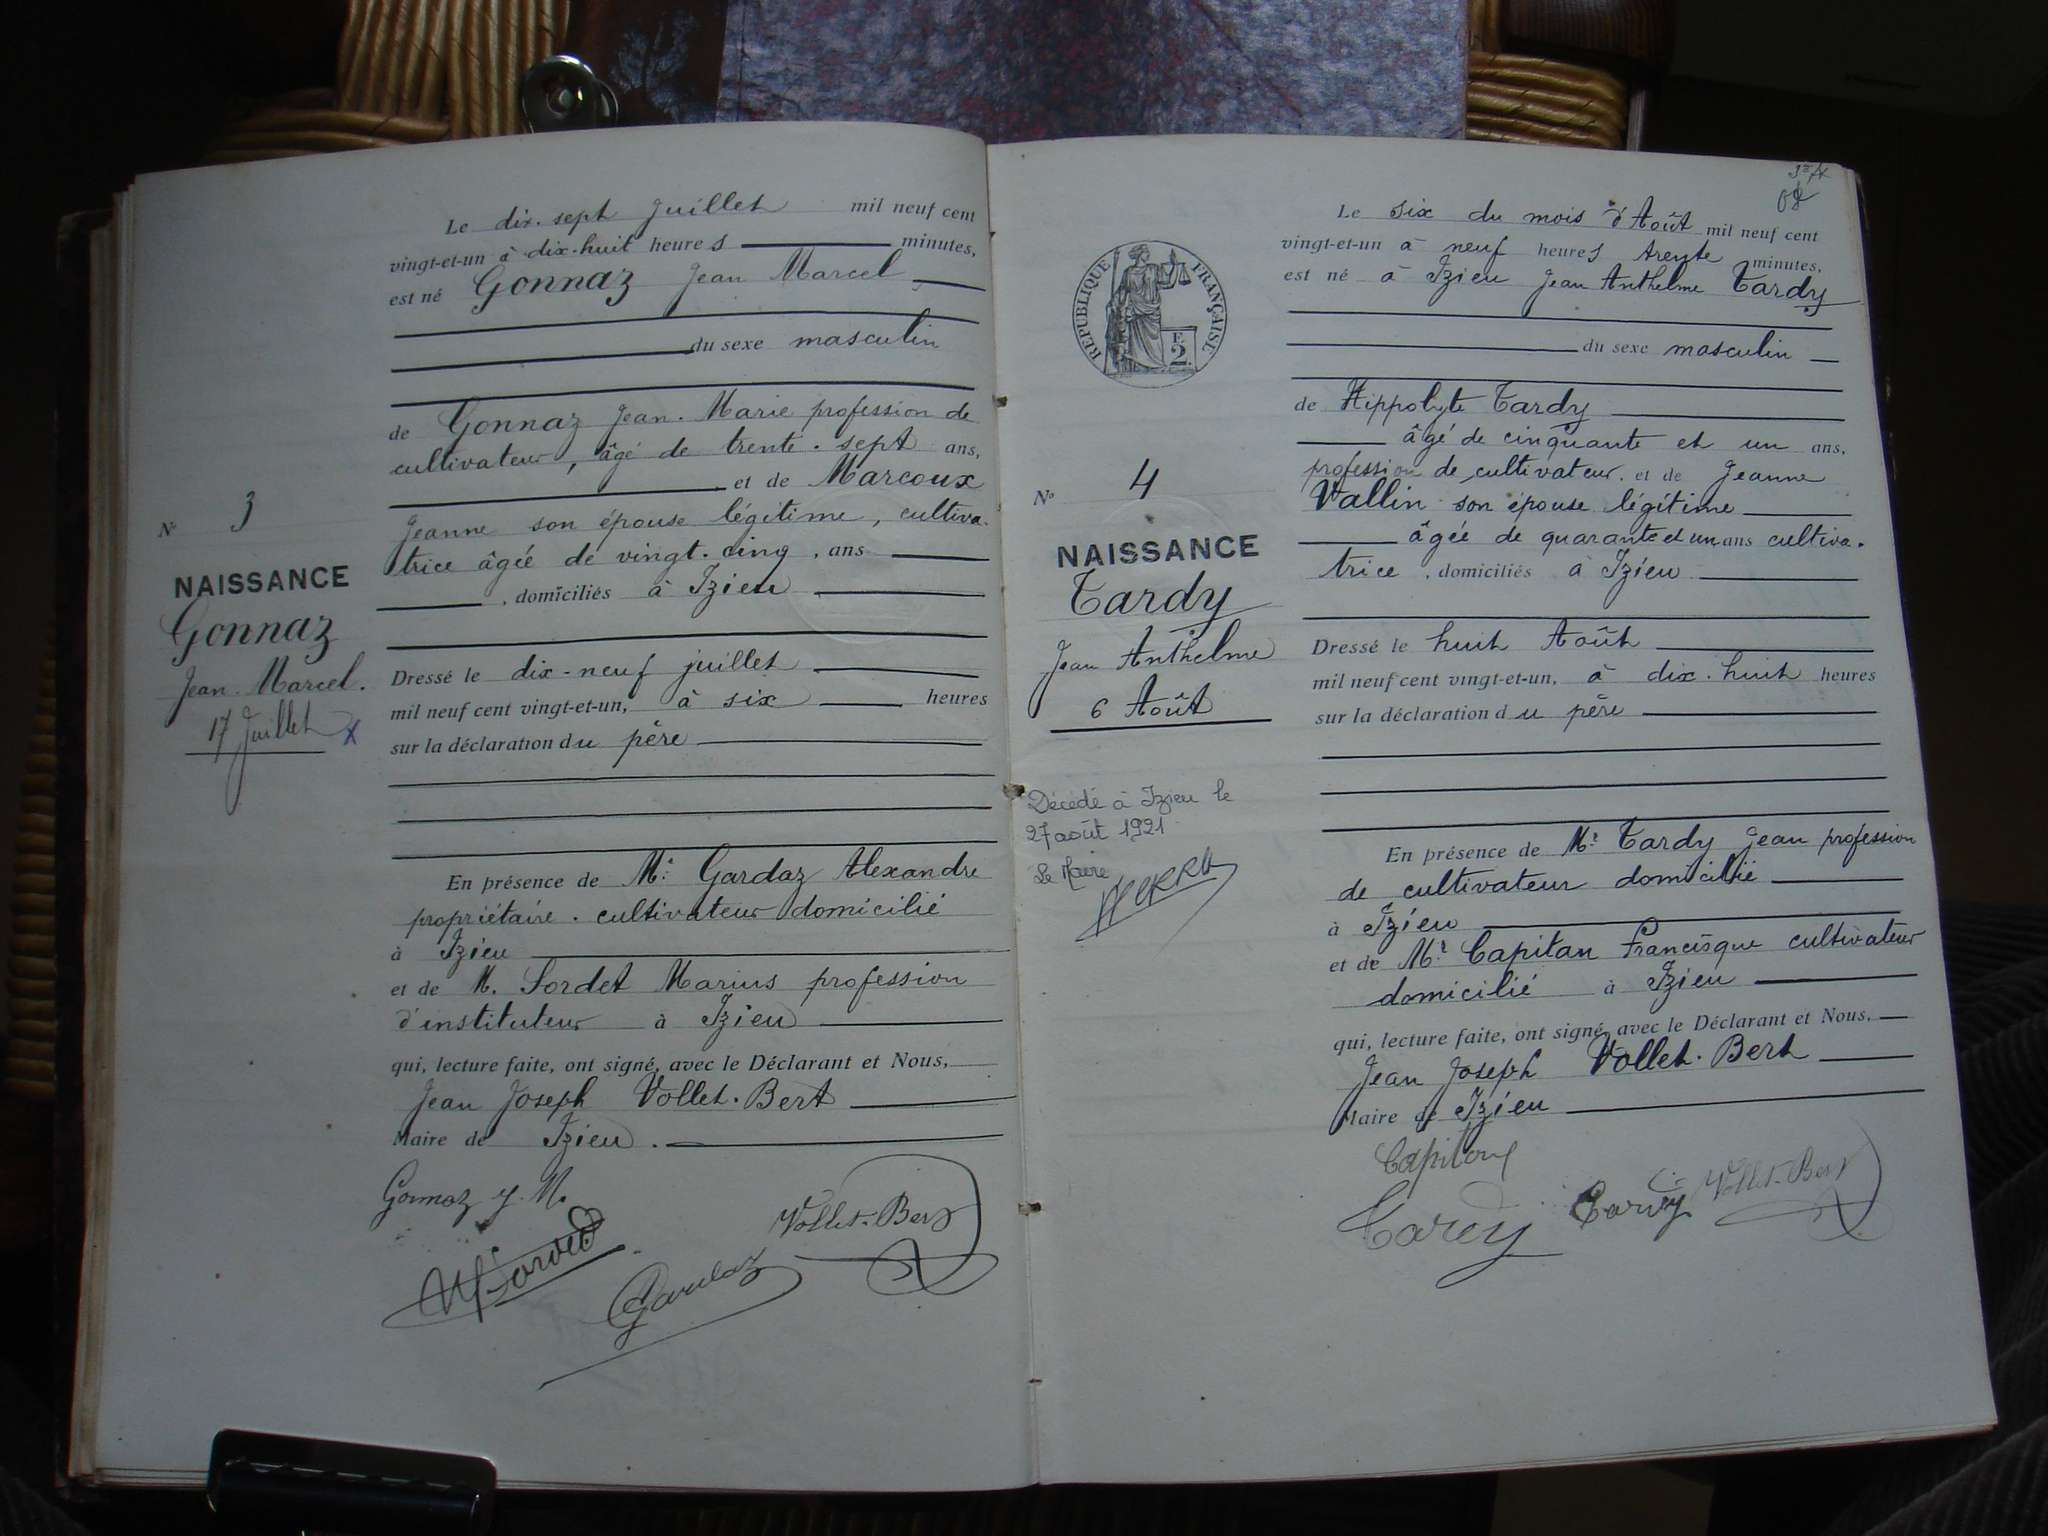 Le dix-sept Juillet mil neuf cent
vingt-et-un à dix-huit heures minutes,
est né Gonnaz Jean Marcel
du sexe masculin
de Gonnaz Jean-Marie profession de
cultivateur, âgé de trente-sept ans,
et de Marcoux
Jeanne son épouse légitime, cultiva-
trice âgée de vingt-cinq, ans
, domiciliés à Izieu
Dressé le dix-neuf juillet
mil neuf cent vingt-et-un, à six heures
sur la déclaration du père
En présence de Mr Gardaz Alexandre
propriétaire-cultivateur domicilié
à Izieu
et de M. Sordet Marius profession
d'instituteur à Izieu
qui, lecture faite, ont signé, avec le Déclarant et Nous,
Jean Joseph Vollet-Bert
Maire de Izieu.
Gonnaz J. M.
Vollet-Bert
Gardaz
No 3
NAISSANCE
Gonnaz
Jean-Marcel.
17 Juillet
Le six du mois d'Août mil neuf cent
vingt-et-un à neuf heures trente minutes,
est né à Izieu Jean Anthelme Tardy
du sexe masculin
de Hippolyte Tardy
âgé de cinquante et un ans,
profession de cultivateur, et de Jeanne
Vallin son épouse légitime
âgée de quarante et un ans cultiva-
trice, domiciliés à Izieu
Dressé le huit Août
mil neuf cent vingt-et-un, à dix-huit heures
sur la déclaration du père
En présence de Mr Tardy Jean profession
de cultivateur domicilié
à Izieu
et de Mr Capitan Francisque cultivateur
domicilié à Izieu
qui, lecture faite, ont signé, avec le Déclarant et Nous,
Jean Joseph Vollet-Bert
Maire de Izieu
Capitan
Tardy Tardy Vollet-Bert
RÉPUBLIQUE FRANÇAISE
F.
2
No 4
NAISSANCE
Tardy
Jean Anthelme
6 Août
Décédé à Izieu le
27 août 1921
Le Maire